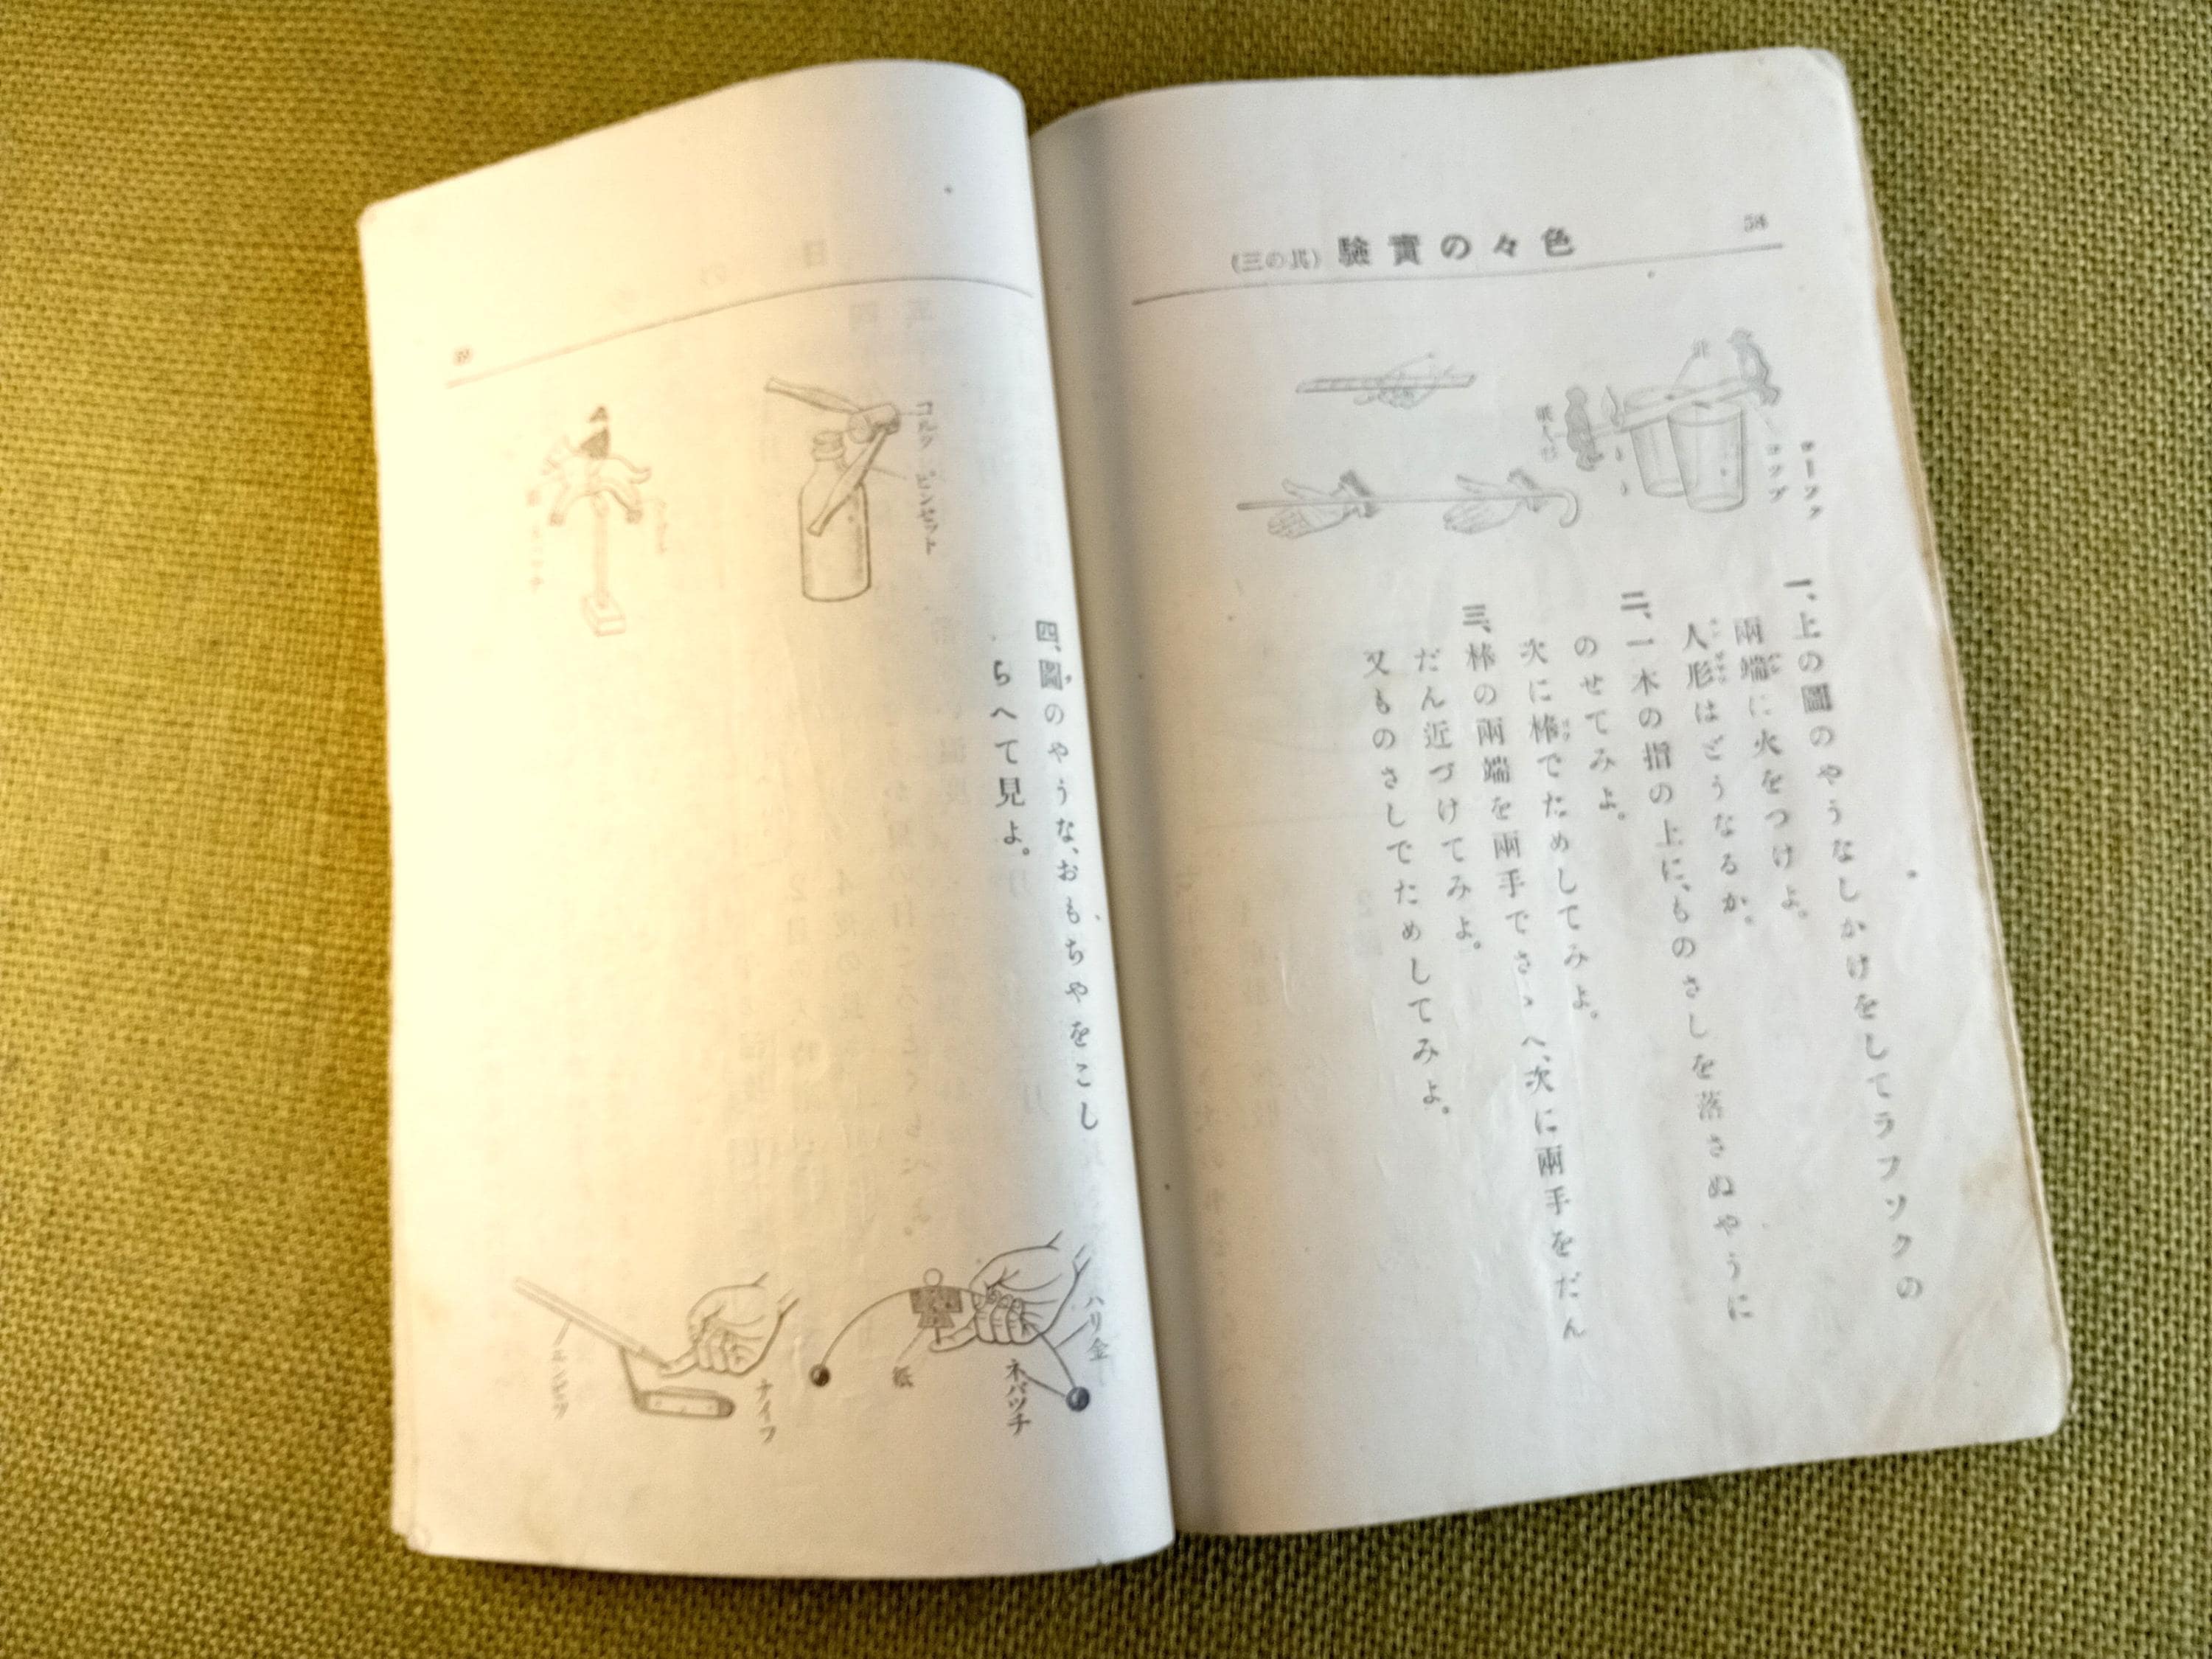 58
色々の實驗 (其の三)
ローソク
コップ
針
紙人形
一、上の圖のやうなしかけをしてラフソクの
兩端に火をつけよ。
人形はどうなるか。
二、一本の指の上に、ものさしを落さぬやうに
のせてみよ。
次に棒でためしてみよ。
三、棒の兩端を兩手でさゝへ、次に兩手をだん
だん近づけてみよ。
又ものさしでためしてみよ。
59
四、圖のやうな、おもちやをこし
らへて見よ。
ハリ金
ネバツチ
紙
ナイフ
エンピツ